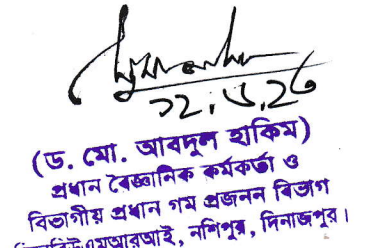 (ড. মো. আবদুল হাকিম)
প্রধান বৈজ্ঞানিক কর্মকর্তা ও
বিভাগীয় প্রধান গম প্রজনন বিভাগ
এমআরআই, নশিপুর, দিনাজপুর।